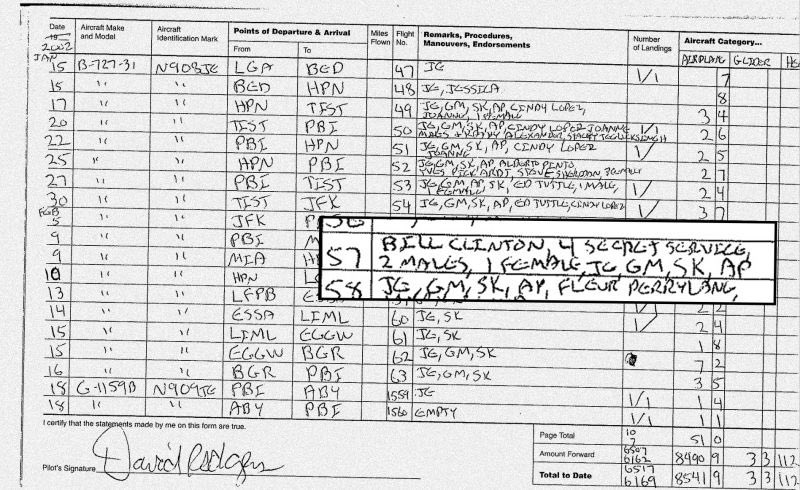 Date Aircraft Make and Model Aircraft Identification Mark Points of Departure & Arrival Miles Flown Flight No. Remarks, Procedures, Maneuvers, Endorsements Number of Landings Aircraft Category...
19 2002 From To AIRPLANE GLIDER
JAN
15 B-727-31 N908JE LGA BED 47 JE 1/1 7
15 " " BED HPN 48 JE, JESSICA 8
17 " " HPN TIST 49 JE, GM, SK, AP, CINDY LOPEZ, 3 4
JOANNE, 1 FEMALE
20 " " TIST PBI 50 JE, GM, SK, AP, CINDY LOPEZ JOANNE 1/1 2 6
22 " " PBI HPN 51 JE, GM, SK, AP, CINDY LOPEZ 1/ 2 5
JOANNE
25 " " HPN PBI 52 JE, GM, SK, AP ALBERTO PINTO, 2 7
27 " " PBI TIST 53 JE, GM, AP, SK, ED TUTTLE, 1 MALE, 1/ 2 4
1 FEMALE
30 " " TIST JFK 54 JE, GM, SK, AP, ED TUTTLE, CINDY LOPEZ 1/ 3 7
FEB
5 " " JFK
9 " " PBI
9 " " MIA
10 " " HPN
13 " " LFPB 2 2
57 BILL CLINTON, 4 SECRET SERVICE,
2 MALES, 1 FEMALE, JE, GM, SK, AP
58 JE, GM, SK, AP, FLEUR PERRYLANG,
14 " " ESSA LIML 60 JE, SK 1/ 2 4
15 " " LIML EGGW 61 JE, SK 1 8
15 " " EGGW BGR 62 JE, GM, SK 7 2
16 " " BGR PBI 63 JE, GM, SK 3 5
18 G-1159B N909JE PBI ABY 1559 JE 1/1 1 4
18 " " ABY PBI 1560 EMPTY 1/1 1 1
I certify that the statements made by me on this form are true.
Page Total 10 7 51 0
Amount Forward 6507 6162 8490 9 3 3 112
Pilot's Signature David Rodgers
Total to Date 6517 6169 8541 9 3 3 112